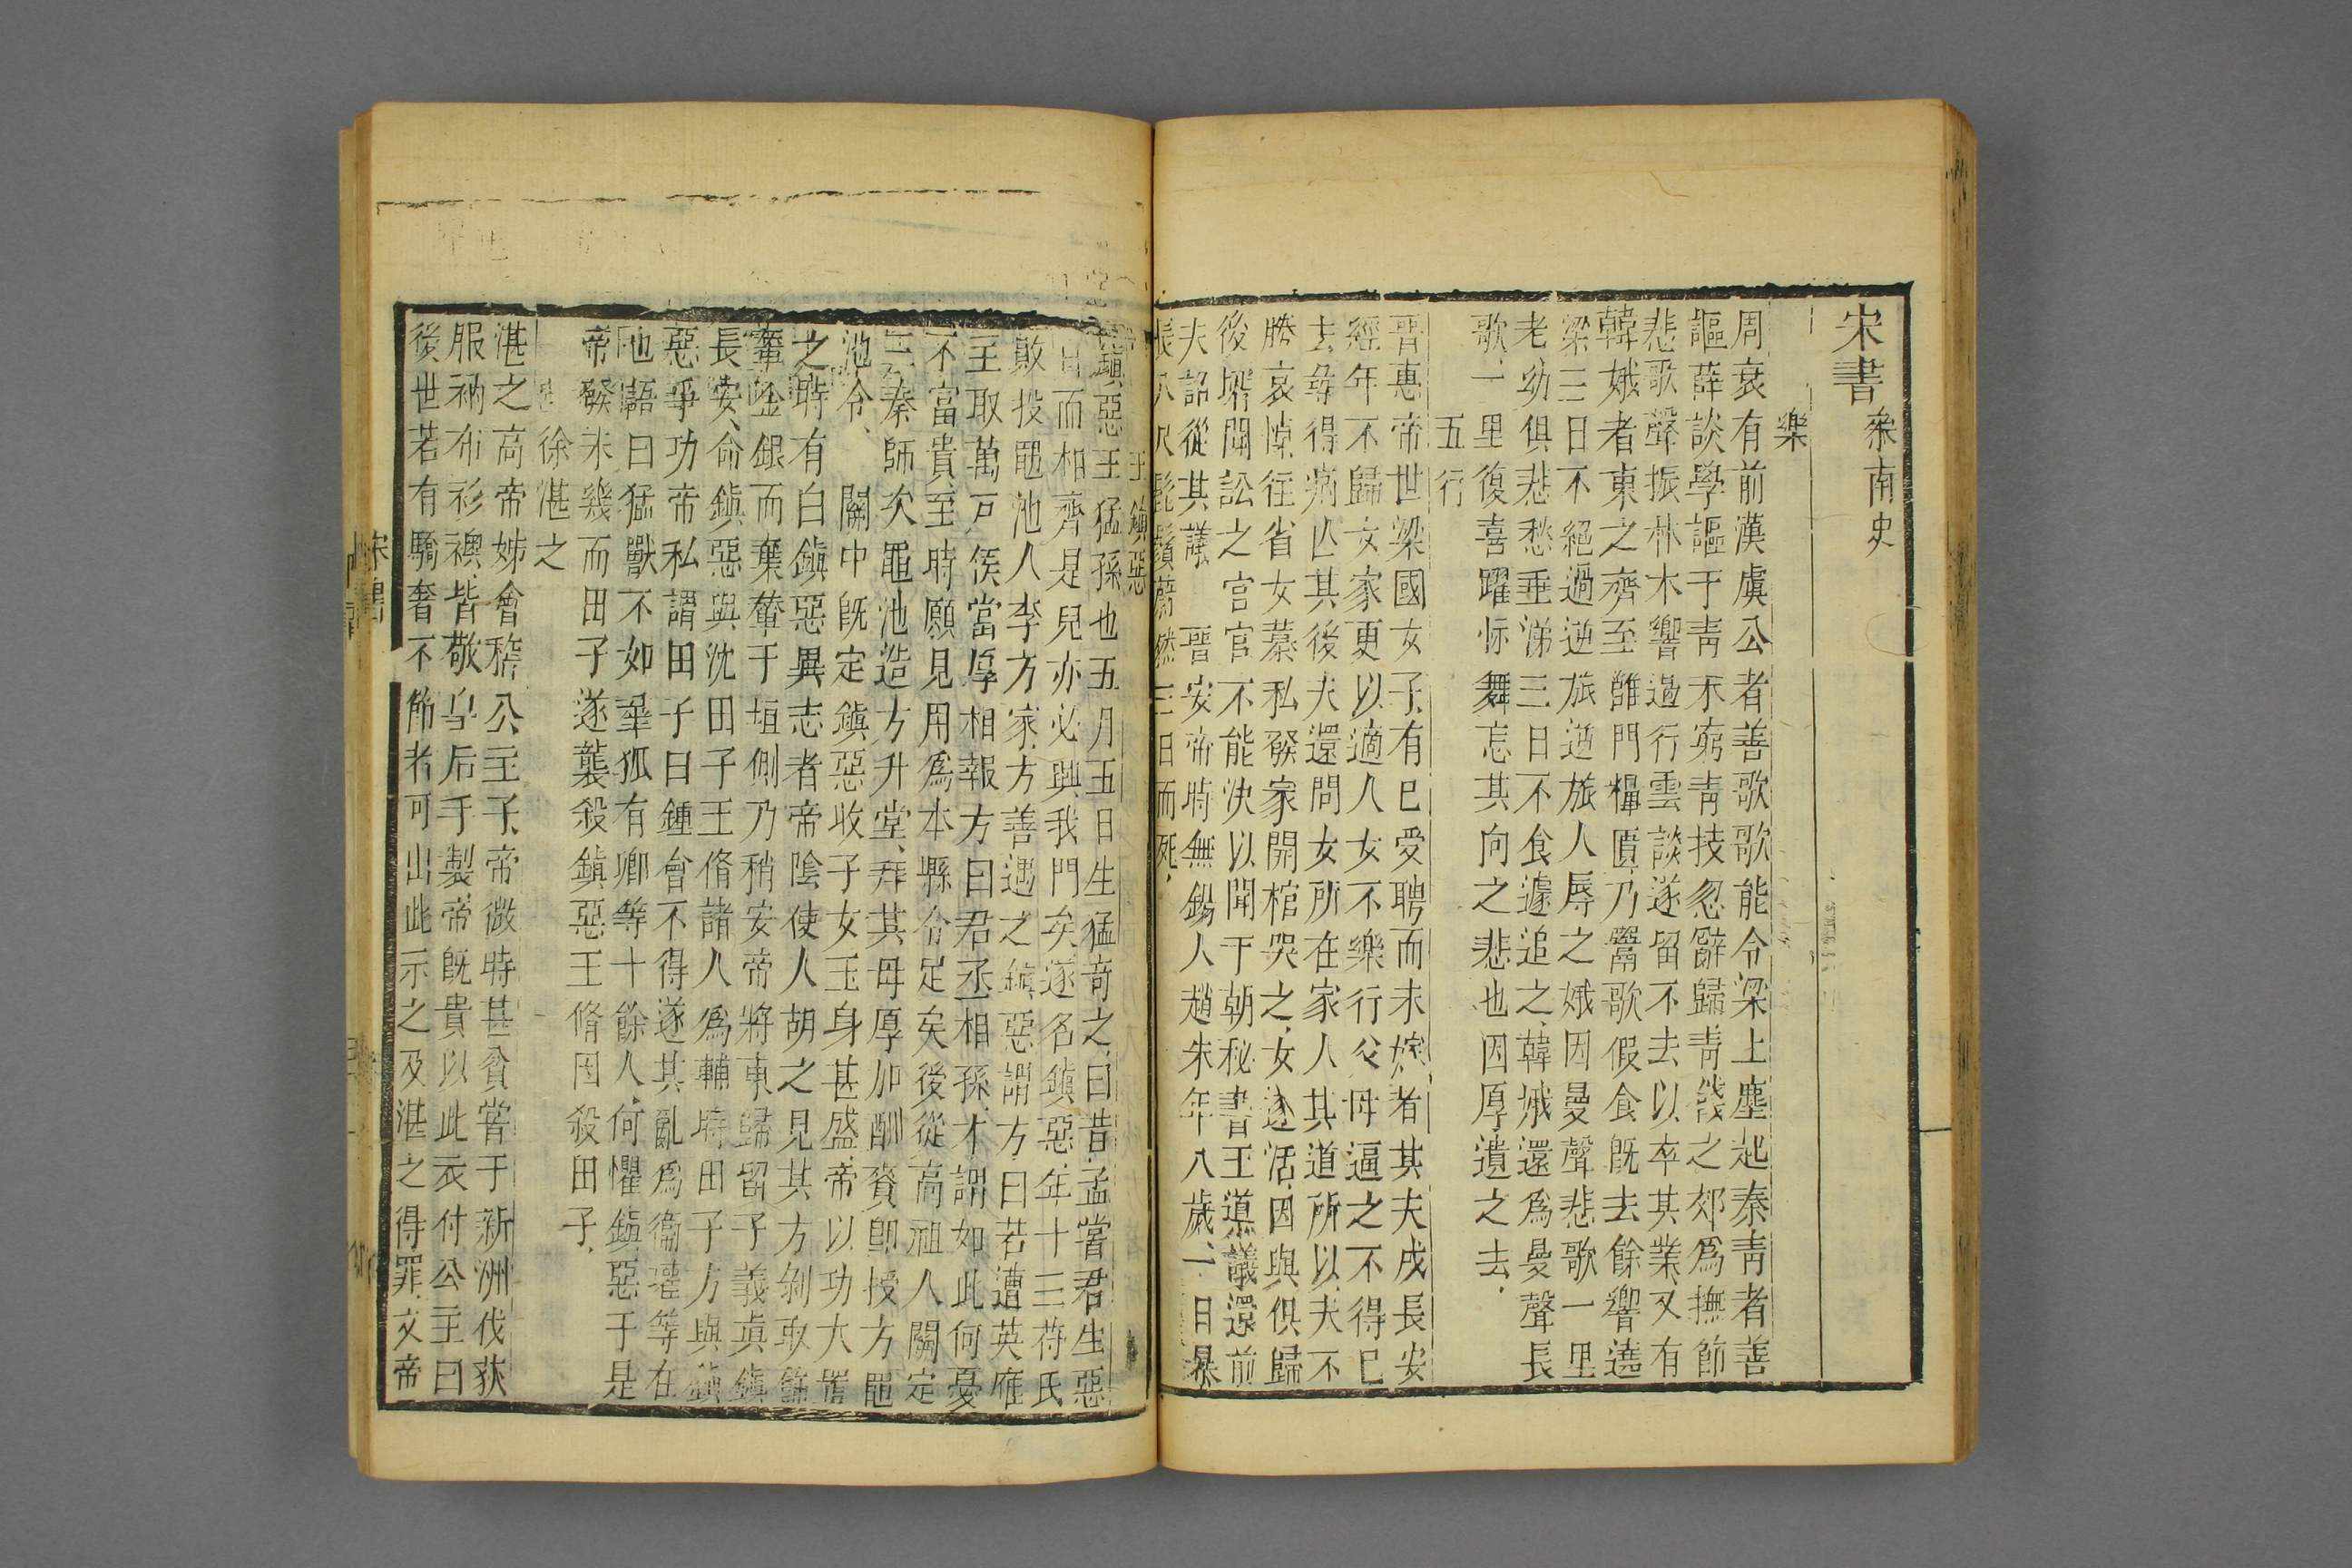 宋書
參南史
樂
周衰有前漢虞公者善歌歌能令梁上塵起秦青者善
謳薛談學謳于青未窮青技忽辭歸青餞之郊爲撫節
悲歌聲振林木響遏行雲談遂留不去以卒其業又有
韓娥者東之齊至雝門糧匱乃鬻歌假食既去餘響遶
梁三日不絕過逆旅逆旅人辱之娥因曼聲悲歌一里
老幼俱悲愁垂涕三日不食遽追之韓娥還爲曼聲長
歌一里復喜躍忭舞忘其向之悲也因厚遺之去
五行
晉惠帝世梁國女子有已受聘而未嫁者其夫戍長安
經年不歸女家更以適人女不樂行父母逼之不得已
去尋得病亾其後夫還問女所在家人其道所以夫不
勝哀悼往省女墓私發冢開棺哭之女遂活因與俱歸
後壻聞訟之官官不能決以聞于朝秘書王導議還前
夫詔從其議 晉安帝時無錫人趙朱年八歲一日暴
長八尺髭鬚蔚然三日而死
王鎮惡
鎮惡王猛孫也五月五日生猛奇之曰昔孟嘗君生惡
日而相齊是兒亦必興我門矣遂名鎮惡年十三苻氏
敗投黽池人李方家方善遇之鎮惡謂方曰若遭英雄
主取萬戸侯當厚相報方曰君丞相孫才謂如此何憂
不富貴至時願見用爲本縣令足矣後從高祖入關定
三秦師次黽池造方升堂拜其母厚加酬賚卽授方黽
池令 關中既定鎮惡收子女玉身甚盛帝以功大置
之時有白鎮惡異志者帝陰使人胡之見其方剝取飾
輦金銀而棄輦于垣側乃稍安帝將東歸留子義真鎮
長安命鎮惡與沈田子王脩諸人爲輔時田子方與鎮
惡爭功帝私謂田子曰鍾會不得遂其亂爲衞瓘等在
也語曰猛獸不如羣狐有卿等十餘人何懼鎮惡于是
帝發未幾而田子遂襲殺鎮惡王脩因殺田子
徐湛之
湛之高帝姊會稽公主子帝微時甚貧嘗于新洲伐荻
服衲布衫襖皆敬皇后手製帝既貴以此衣付公主曰
後世若有驕奢不節者可出此示之及湛之得罪文帝